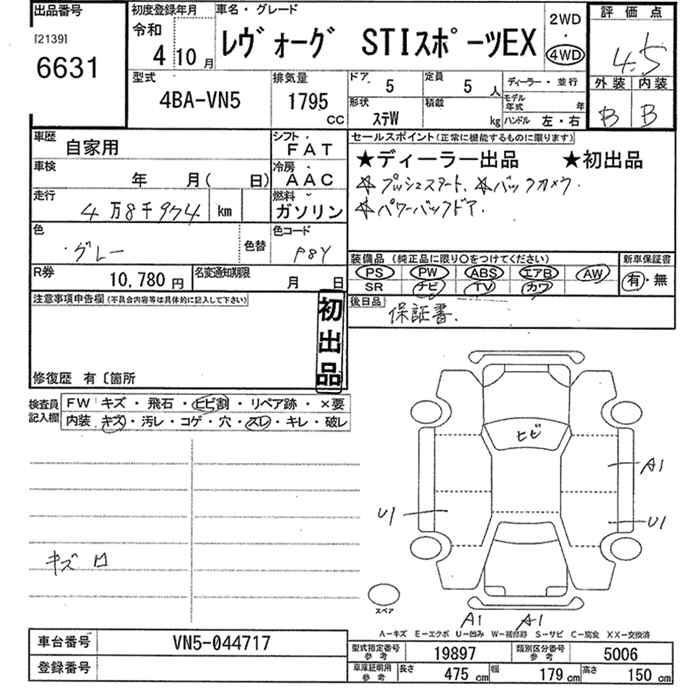 出品番号
[2139]
6631
初度登録年月
令和
4 10月
車名・グレード
レヴォーグ STIスポーツEX
2WD
・
4WD
評価点
4.5
外装 内装
B B
型式
4BA-VN5
排気量
1795
cc
ドア
5
定員
5 人
形状
ステW
積載
kg
ディーラー・並行
モデル年式 年
ハンドル 左・右
車歴
自家用
シフト
FAT
車検
年 月( 日)
冷房
AAC
走行
4万8千974 km
燃料
ガソリン
色
グレー
色替
色コード
P8Y
R券
10,780円
名変通知期限
月 日
セールスポイント(正常に機能するものに限ります)
★ディーラー出品 ★初出品
☆プッシュスタート、☆バックカメラ.
☆パワーバックドア.
装備品 (純正品に限り○をつけてください)
PS PW ABS エアB AW
SR ナビ TV カワ
新車保証書
有・無
後日品
保証書.
注意事項申告欄(不具合内容等は具体的に記入して下さい)
初出品
修復歴 有〔箇所
検査員記入欄
FW キズ・飛石・ヒビ割・リペア跡・×要
内装 キズ・汚レ・コゲ・穴・スレ・キレ・破レ
キズ 口
ヒビ
A1
U1
U1
スペア
A1 A1
A-キズ E-エクボ U-凹み W-補修跡 S-サビ C-腐食 XX-交換済
車台番号
VN5-044717
登録番号
型式指定番号
参考
19897
類別区分番号
参考
5006
車庫証明用
参考
長さ
475 cm
幅
179 cm
高さ
150 cm